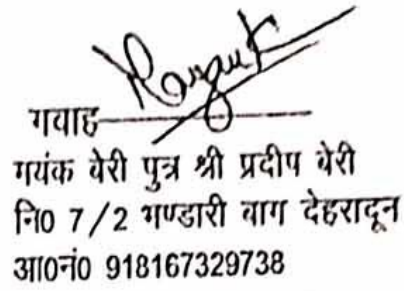 गवाह
मयंक वेरी पुत्र श्री प्रदीप वेरी
नि0 7/2 भण्डारी बाग देहरादून
आ0नं0 918167329738